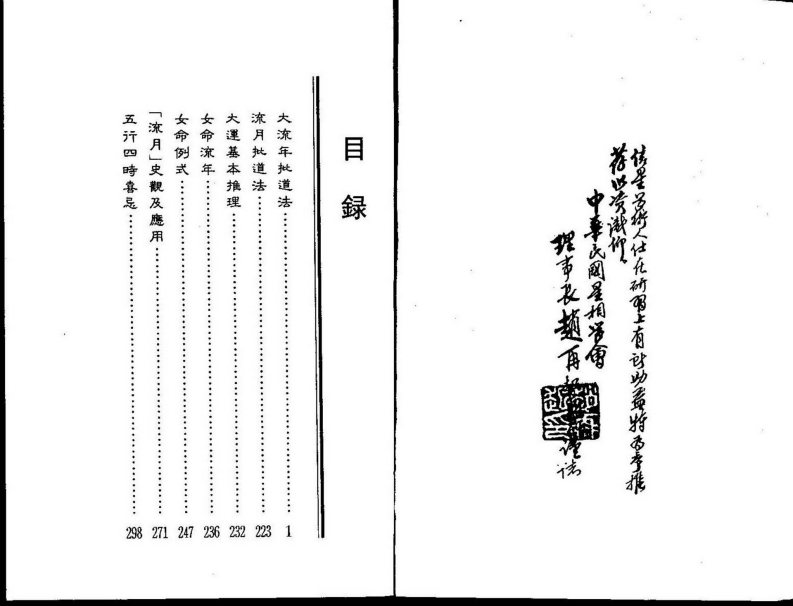 星學術人仕在研習上有所助益特為序推
荐以資
中華民國星相學會
理事長趙再 謹誌
目錄
大流年批道法……………………1
流月批道法……………………223
大運基本推理……………………232
女命流年……………………236
女命例式……………………247
「流月」史觀及應用……………………271
五行四時喜忌……………………298